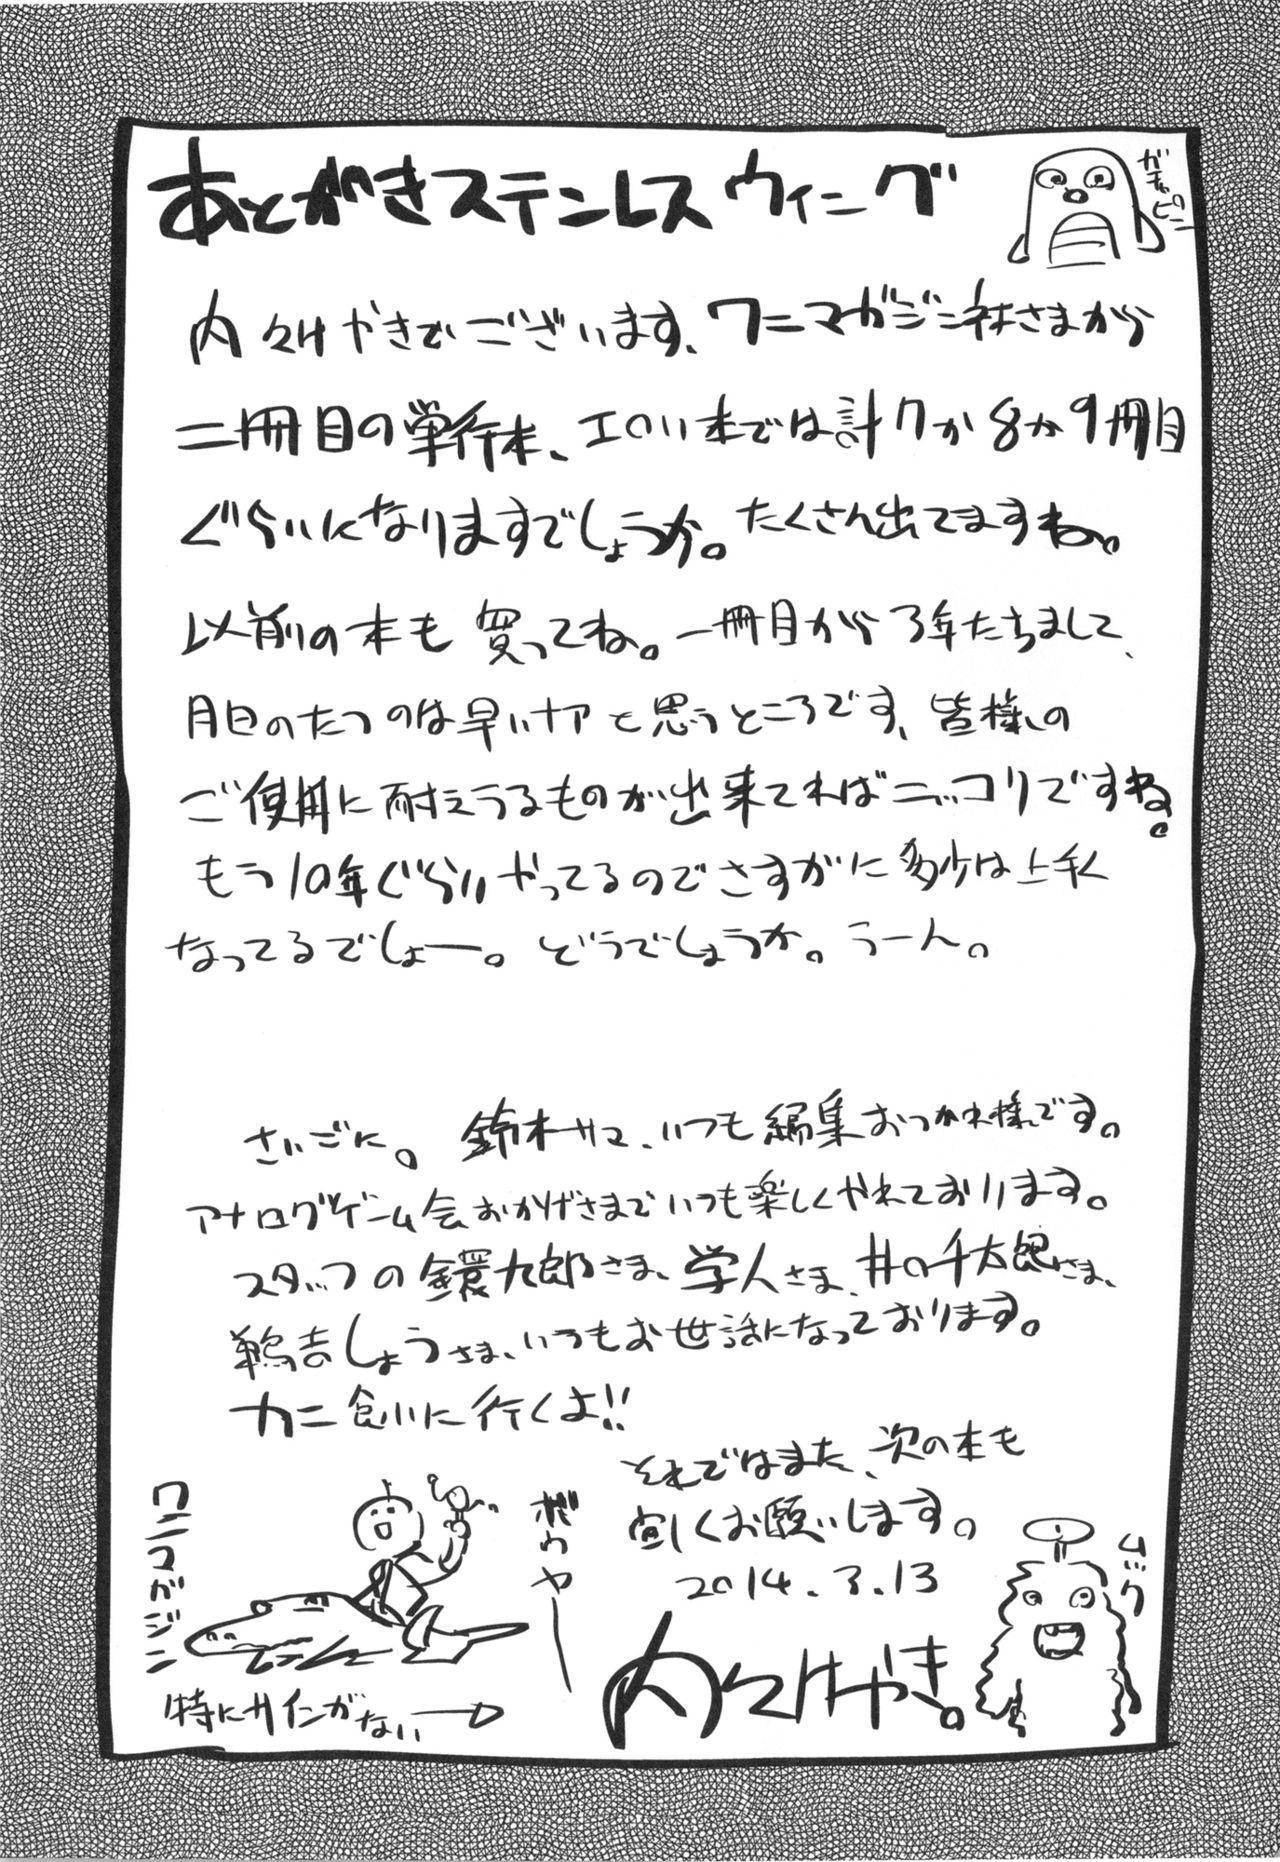 あとがきステンレスウィング
ガチャピン
内々けやきでございます、ワニマガジン社さまから
二冊目の単行本、エロい本では計7か8か9冊目
ぐらいになりますでしょうか。たくさん出てますね。
以前の本も買ってね。一冊目から3年たちまして、
月日のたつのは早いナァと思うところです、皆様の
ご使用に耐えうるものが出来てればニッコリですね。
もう10年ぐらいやってるのでさすがに多少は上手く
なってるでしょー。どうでしょうか。うーん。
さいごに。鈴木サマ、いつも編集おつかれ様です。
アナログゲーム会おかげさまでいつも楽しくやれております。
スタッフの鐶九郎さま、学人さま、井の千太郎さま、
鶉吉しょうさま、いつもお世話になっております。
カニ食いに行くよ!!
それではまた、次の本も
宜しくお願いします。
2014.3.13
内々けやき。
ワニマガジン
ボウヤー
特にサインがない
ムック